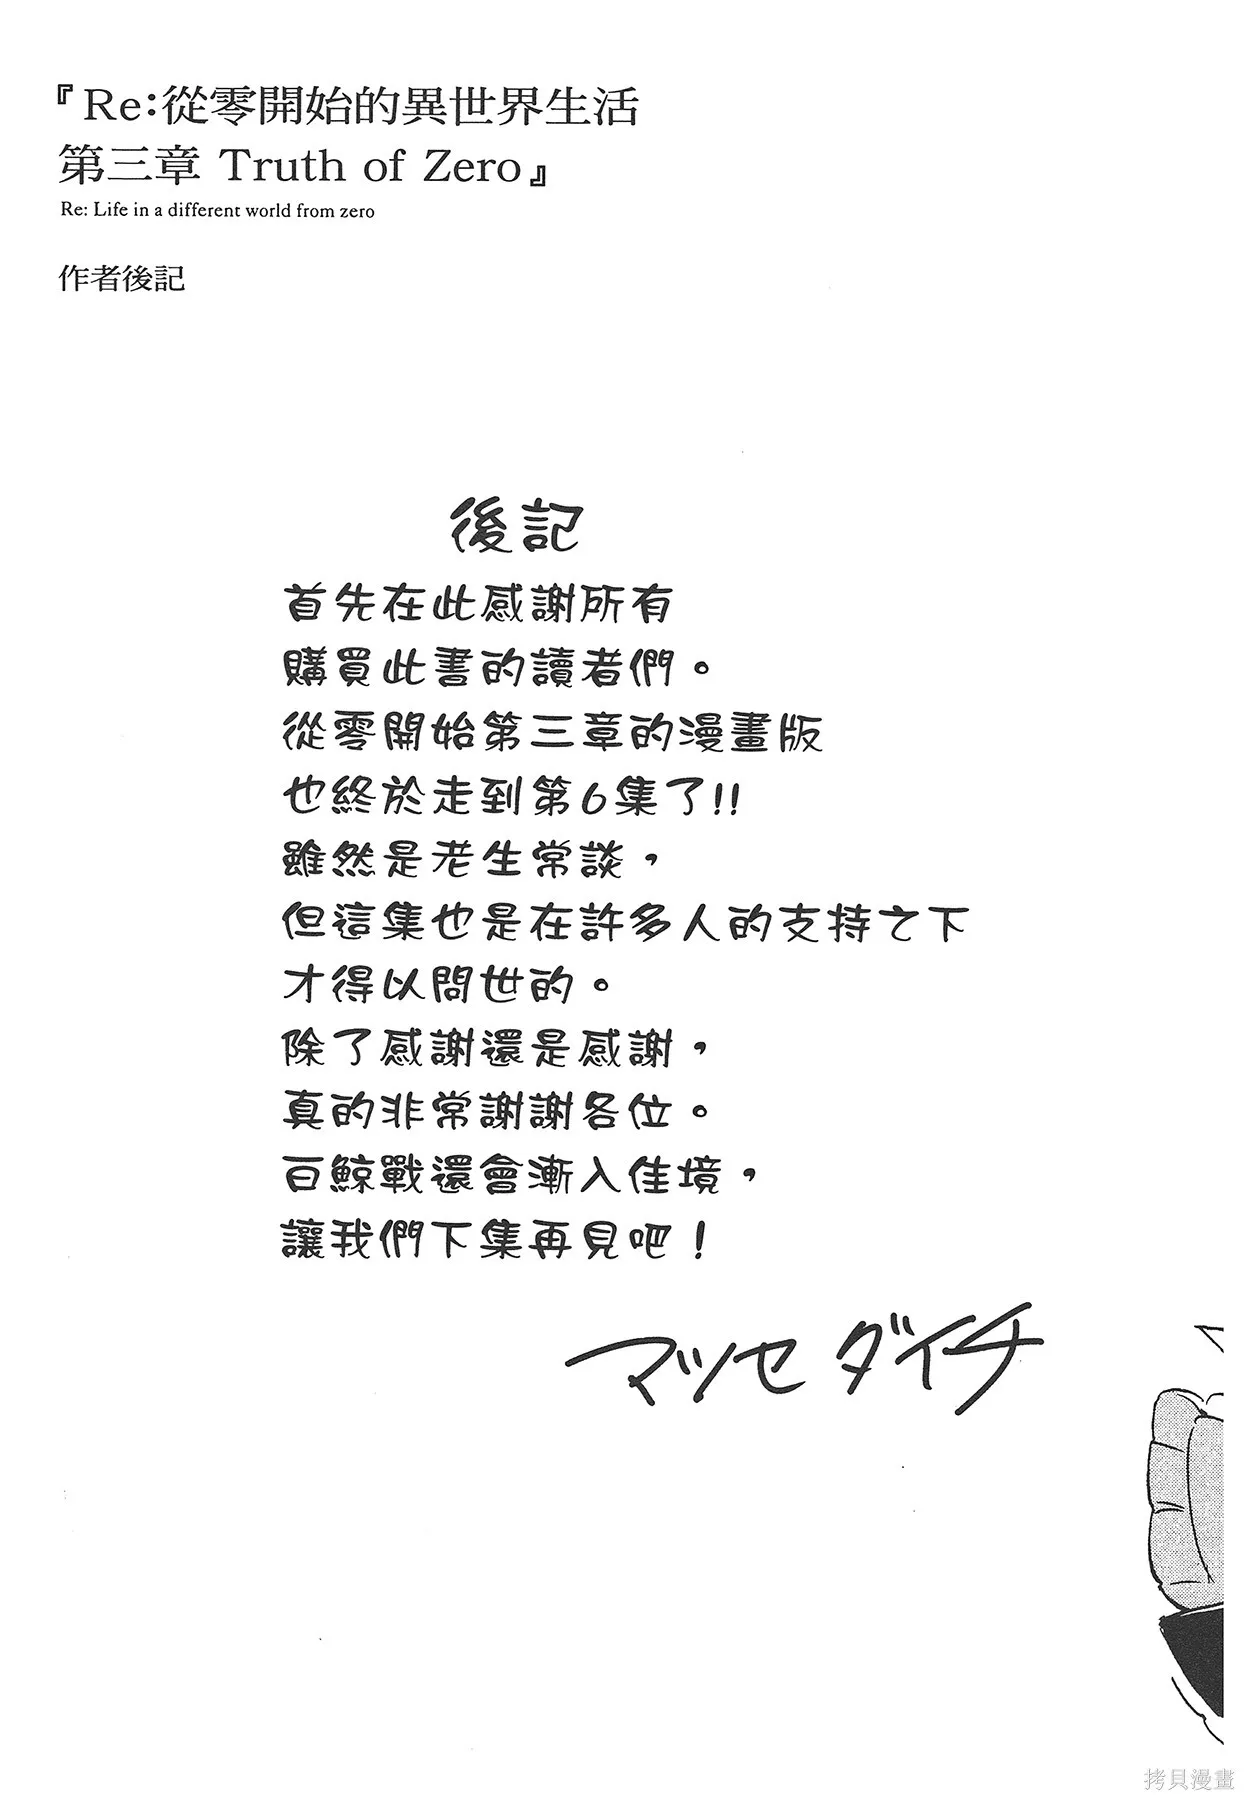 『Re:從零開始的異世界生活
第三章 Truth of Zero』
Re: Life in a different world from zero
作者後記
後記
首先在此感謝所有
購買此書的讀者們。
從零開始第三章的漫畫版
也終於走到第6集了!!
雖然是老生常談，
但這集也是在許多人的支持之下
才得以問世的。
除了感謝還是感謝，
真的非常謝謝各位。
白鯨戰還會漸入佳境，
讓我們下集再見吧！
マツセダイチ
拷貝漫畫